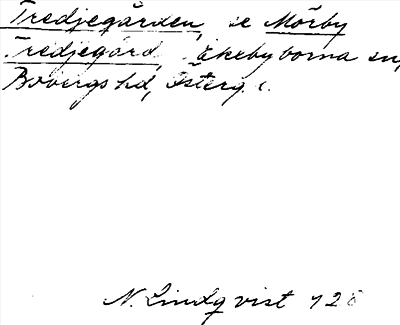 Tredjegården, se Mörby
Tredjegård, Ekebyborna sn,
Bobergs hd, Österg.
N. Lindqvist